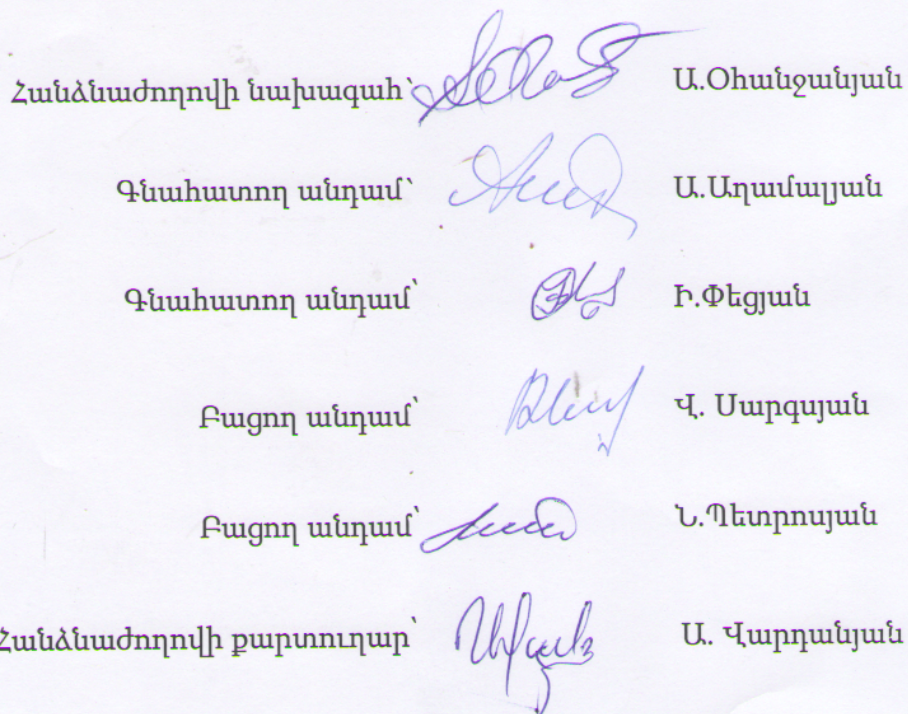 Հանձնաժողովի նախագահ՝ Ա.Օհանջանյան
Գնահատող անդամ՝ Ա.Աղամալյան
Գնահատող անդամ՝ Ի.Փեցյան
Բացող անդամ՝ Վ. Սարգսյան
Բացող անդամ՝ Ն.Պետրոսյան
Հանձնաժողովի քարտուղար՝ Ա. Վարդանյան